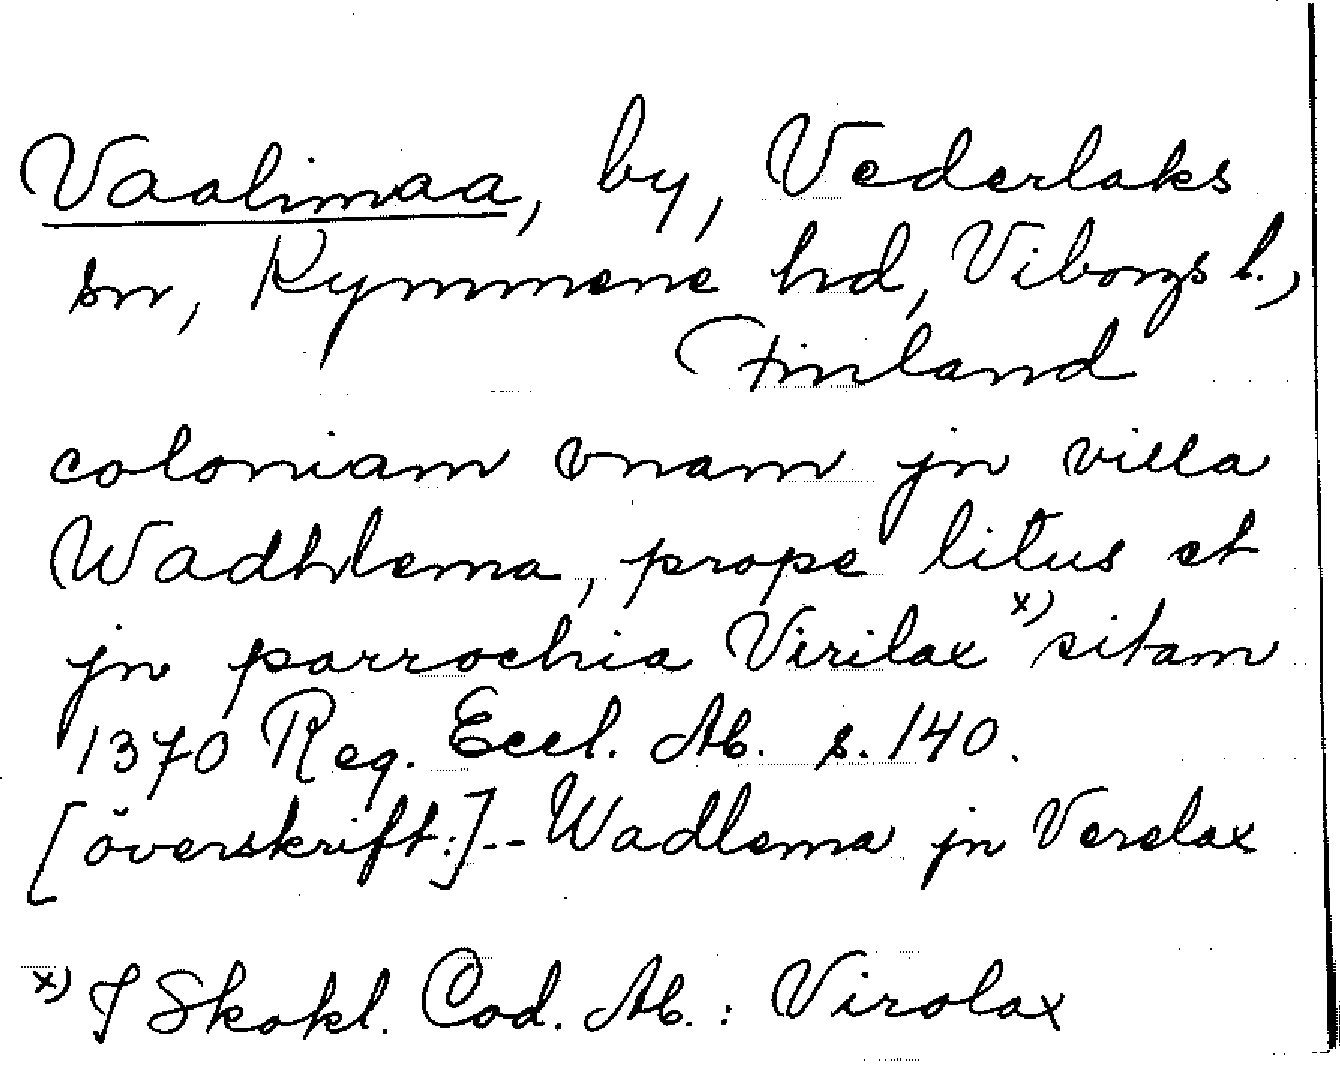 Vaalimaa, by, Vederlaks
sn, Kymmene hd, Viborgs l.,
Finland
coloniam vnam jn villa
Wadhlema, prope litus et
jn parrochia Virilax x) sitam
1370 Reg. Eccl. Ab. s. 140.
[överskrift:] -- Wadlema jn Verelax
x) I Skokl. Cod. Ab.: Virolax